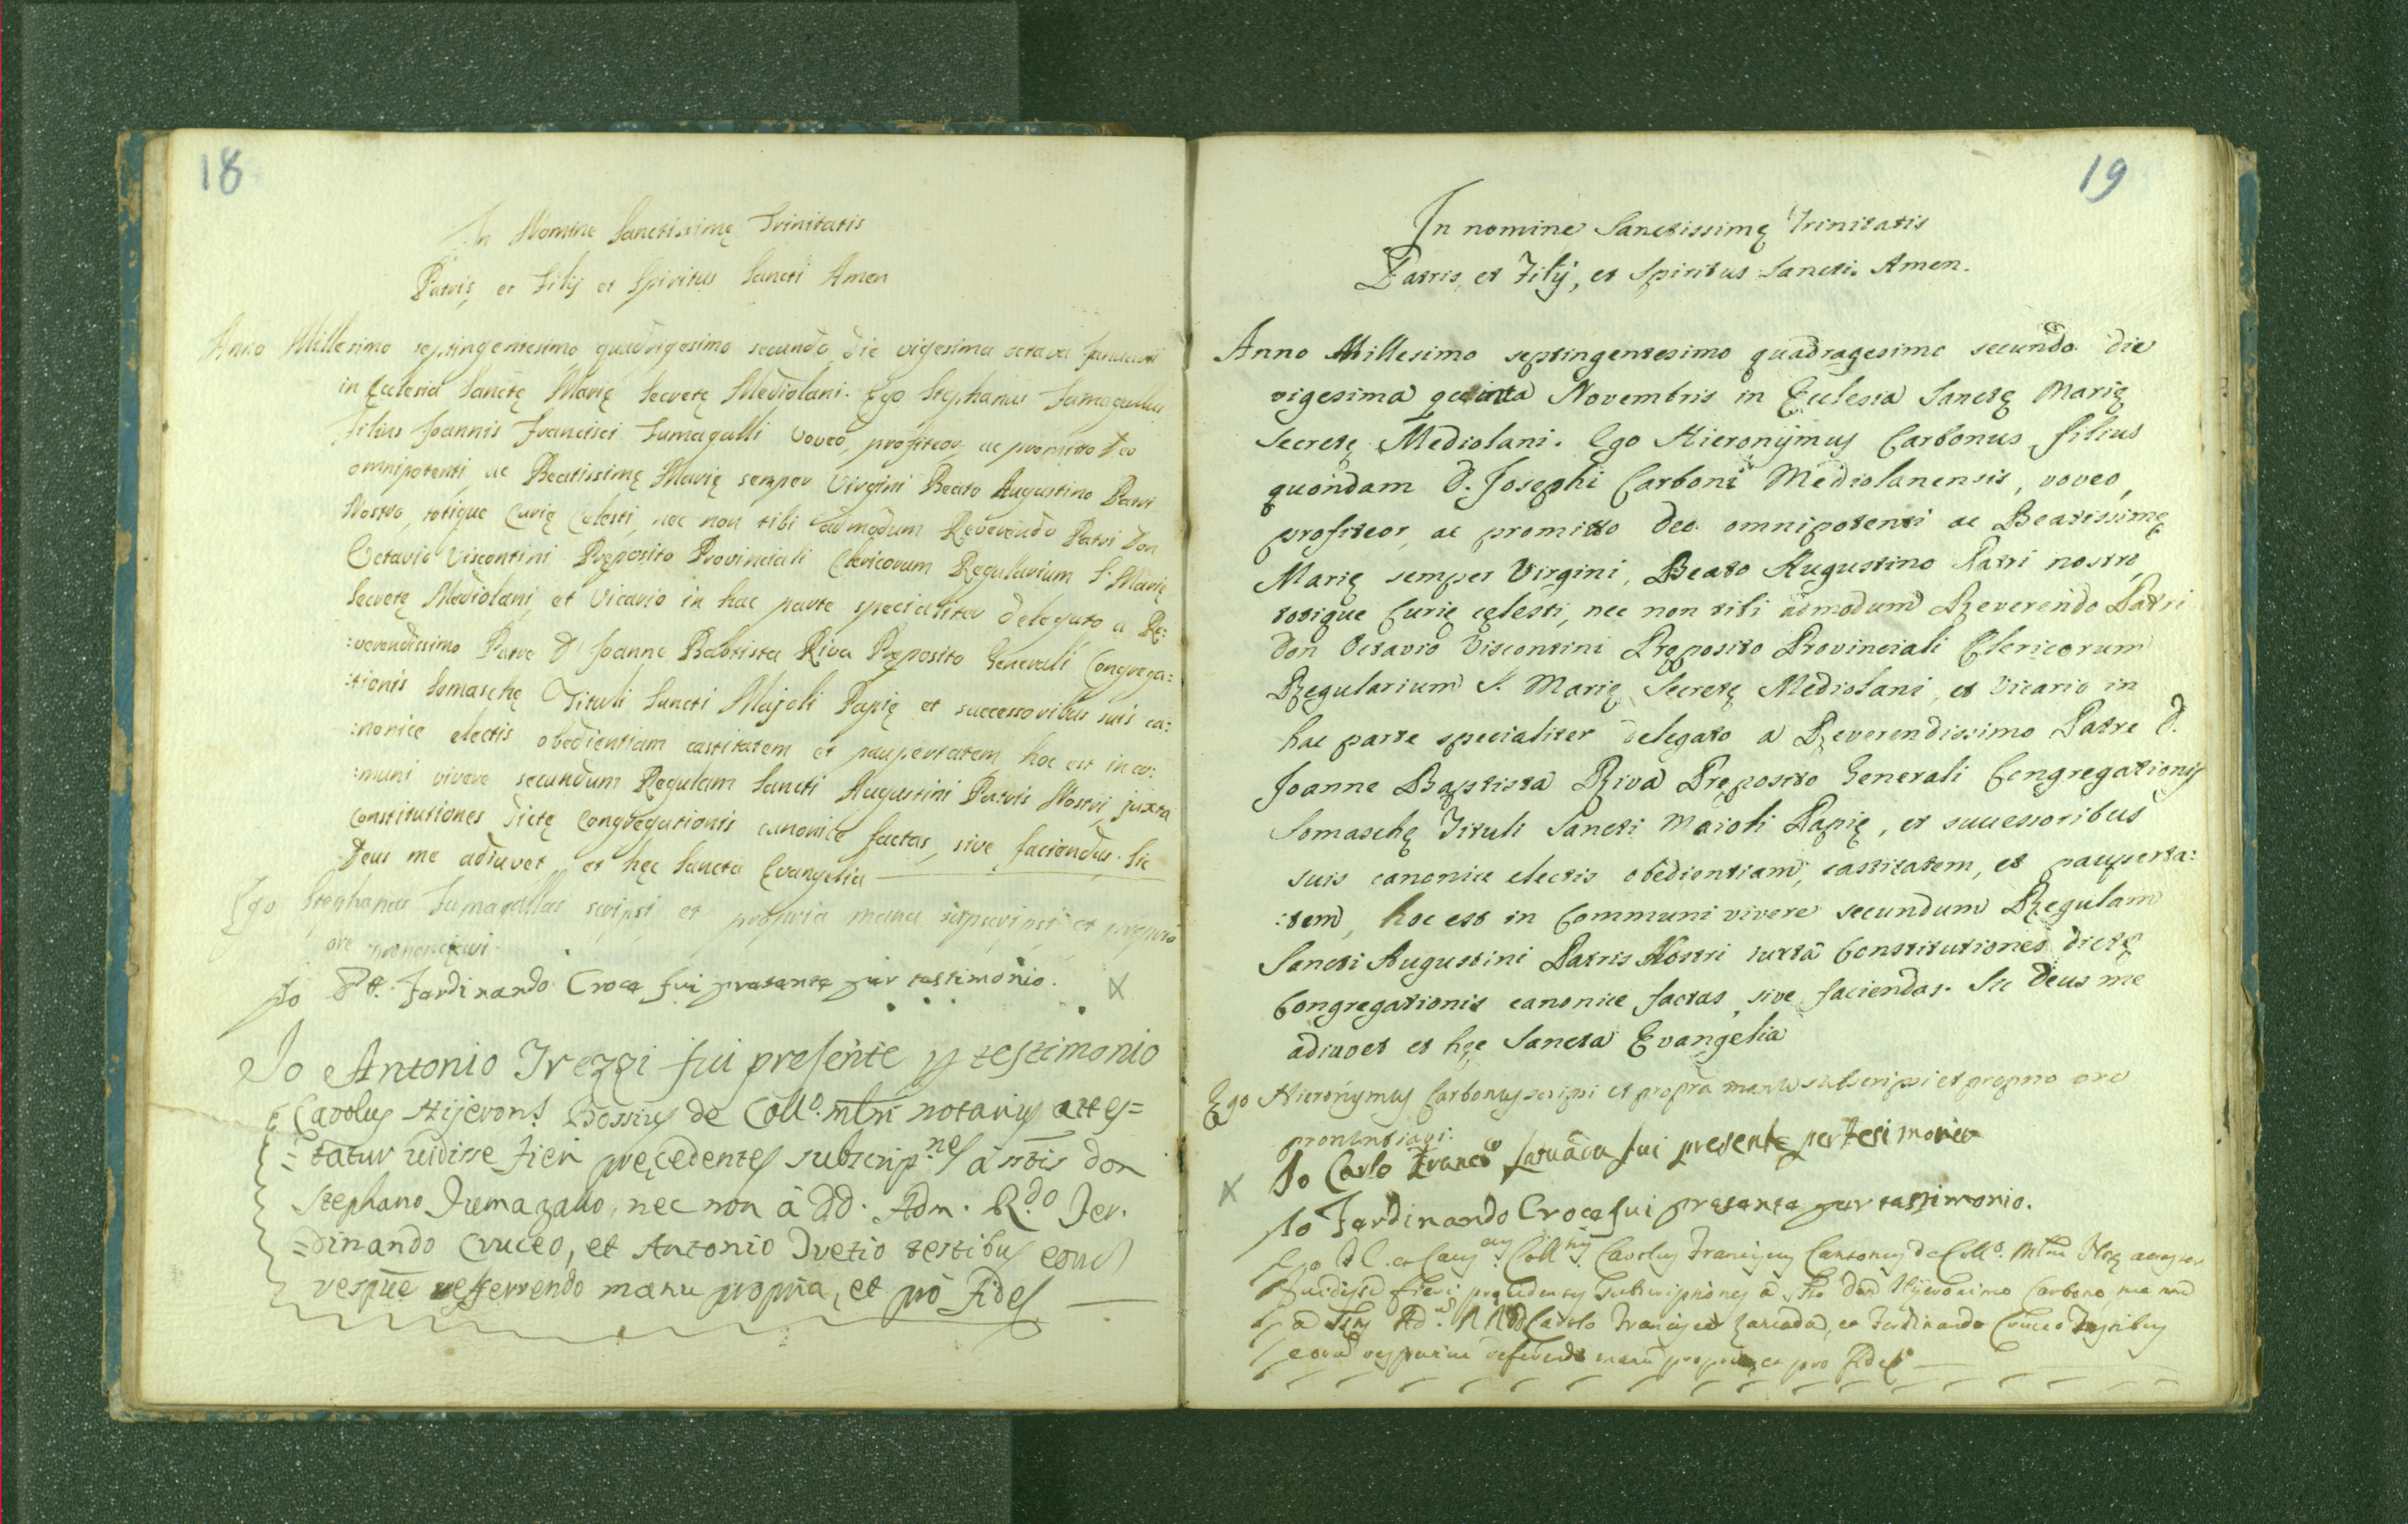 18
In Nomine Sanctissimę Trinitatis
Patris, et Filij et Spiritus Sancti Amen
Anno Millesimo septingentesimo quadrigesimo secundo die vigesima octava Januarii
in Ecclesia Sanctę Marię Secretę Mediolani. Ego Stephanus Fumagallus
Filius Joannis Francisci Fumagalli voveo, profiteor, ac promitto Deo
omnipotenti, ac Beatissimę Marię semper Virgini Beato Augustino Patri
Nostro, totique Curię Celesti, nec non tibi admodum Reverendo Patri Don
Octavio Viscontini Pręposito Provinciali Clericorum Regularium S. Marię
Secretę Mediolani, et Vicario in hac parte specialiter delegato a Re:
:verendissimo Patre D. Joanne Babtista Riva Pręposito Generali Congrega:
:tionis Somaschę Tituli Sancti Majoli Papię et successoribus suis ca:
:nonice electis obedientiam castitatem et paupertatem, hoc est in co:
:muni vivere secundum Regulam Sancti Augustini Patris Nostri, juxta
Constitutiones dictę Congregationis canonice factas, sive faciendas. Sic
Deus me adiuvet, et hęc Sancta Evangelia
Ego Stephanus Fumagallus scripsi et propria manu supscripsi et proprio
ore prononciavi.
Jo Ferdinando Croce fui presente per testimonio. X
Jo Antonio Trezzi fui presente p testimonio
Carolus Hijeron.s Bossius de Coll.o mlni notarius attes=
=tatur uidisse fieri pręcedentes subscrip.nes à sctis don
Stephano Fumagallo, nec non à dd. Adm. R.do Fer.
=dinando Cruceo, et Antonio Tretio testibus
respue refferendo manu propria, et pro fide
19
In nomine Sanctissimę Trinitatis
Patris, et Filij, et Spiritus Sancti. Amen.
Anno Millesimo septingentesimo quadragesimo secundo die
vigesima quinta Novembris in Ecclesia Sanctę Marię
Secretę Mediolani. Ego Hieronymus Carbonus filius
quondam D. Josephi Carboni Mediolanensis, voveo,
profiteor, ac promitto Deo omnipotenti ac Beatissimę
Marię semper Virgini, Beato Augustino Patri nostro,
totique Curię cęlesti, nec non tibi admodum Reverendo Patri
Don Octavio Viscontini Pręposito Provinciali Clericorum
Regularium S. Marię Secretę Mediolani, et Vicario in
hac parte specialiter delegato a Reverendissimo Patre D.
Joanne Baptista Riva Pręposito Generali Congregationis
Somaschę Tituli Sancti Maioli Papię, et successoribus
suis canonice electis obedientiam, castitatem, et pauperta:
:tem, hoc est in Communi vivere secundum Regulam
Sancti Augustini Patris Nostri iuxta Constitutiones dictę
Congregationis canonice factas, sive faciendas. Sic Deus me
adiuvet et hęc Sancta Evangelia
Ego Hieronymus Carbonus scripsi et propria manu subscripsi et proprio ore
pronuntiavi.
X Jo Carlo Franc.co fui presente per Tesimonio
Jo Ferdinando Croce fui presente per testimonio.
Carolus Franciscus Cantonus de Coll.o
fieri pręcedentes subscriptiones à don Hijeronimo Carbono, nec non
Carolo Francisco et Ferdinando Cruceo Testibus
referendo manu propria, et pro fide